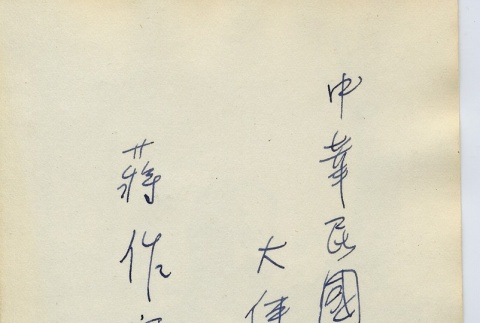 中華民國
大使
蔣作